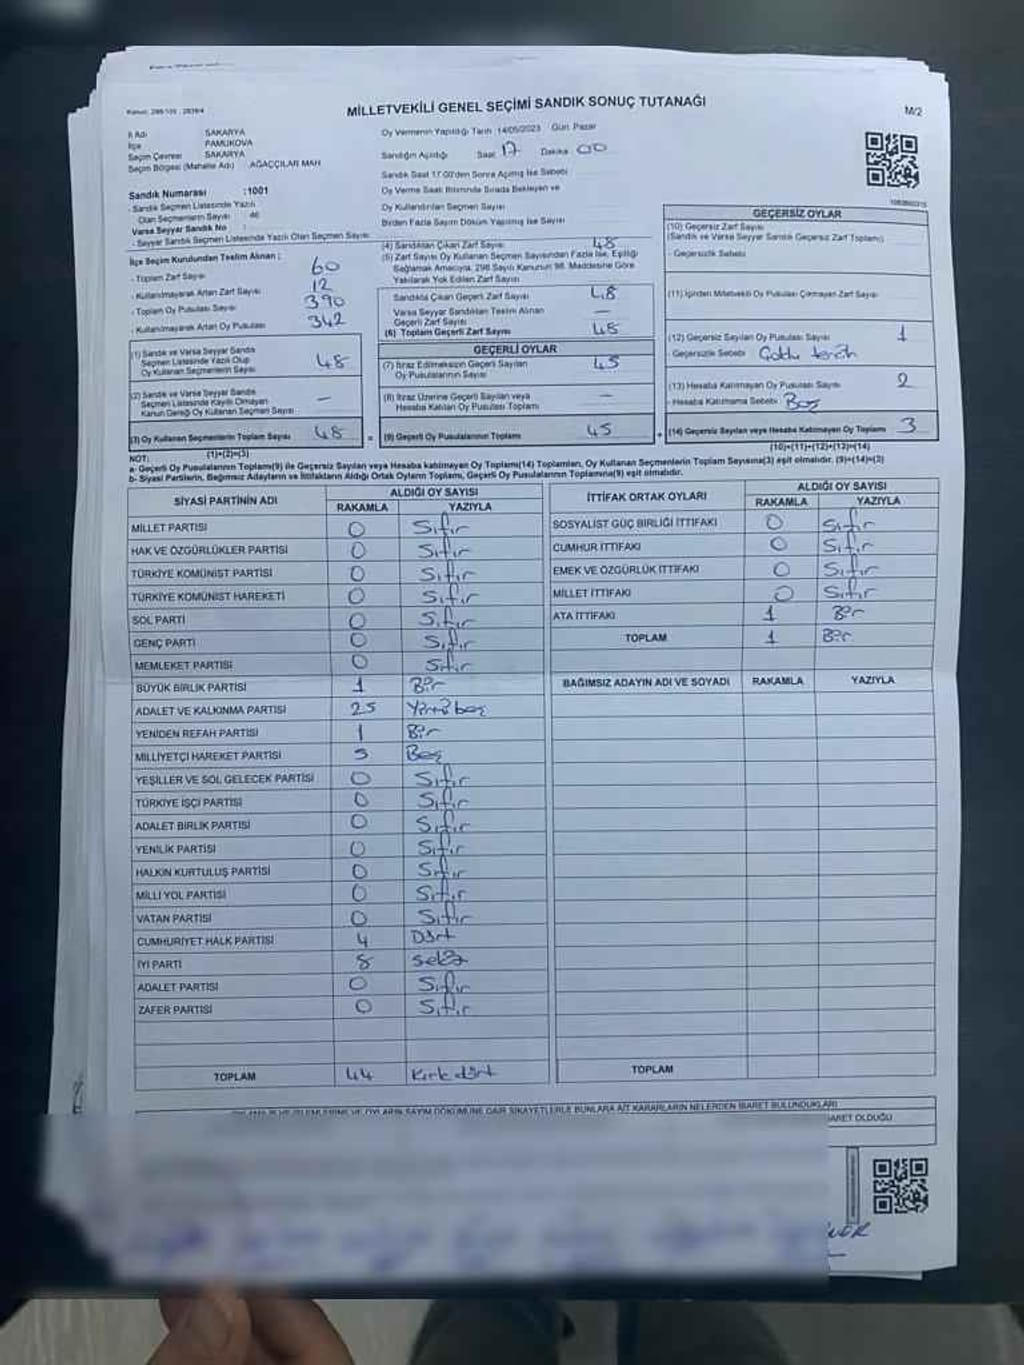 MİLLETVEKİLİ GENEL SEÇİMİ SANDIK SONUÇ TUTANAĞI
M/2
İl Adı SAKARYA
İlçe PAMUKOVA
Seçim Çevresi SAKARYA
Seçim Bölgesi (Mahalle Adı) AĞAÇÇILAR MAH
Oy Vermenin Yapıldığı Tarih 14/05/2023 Gün Pazar
Sandığın Açıldığı Saat 17 Dakika 00
Sandık Saat 17:00'den Sonra Açılmış İse Sebebi
Oy Verme Saati Bitiminde Sırada Bekleyen ve
Oy Kullandırılan Seçmen Sayısı
Birden Fazla Sayım Döküm Yapılmış İse Sayısı
Sandık Numarası :1001
- Sandık Seçmen Listesinde Yazılı
Olan Seçmenlerin Sayısı
Varsa Seyyar Sandık No :
- Seyyar Sandık Seçmen Listesinde Yazılı Olan Seçmen Sayısı:
İlçe Seçim Kurulundan Teslim Alınan :
- Toplam Zarf Sayısı 60
- Kullanılmayarak Artan Zarf Sayısı 12
- Toplam Oy Pusulası Sayısı 390
- Kullanılmayarak Artan Oy Pusulası 342
(1) Sandık ve Varsa Seyyar Sandık
Seçmen Listesinde Yazılı Olup
Oy Kullanan Seçmenlerin Sayısı 48
(2) Sandık ve Varsa Seyyar Sandık
Seçmen Listesinde Kayıtlı Olmayan
Kanun Gereği Oy Kullanan Seçmen Sayısı –
(3) Oy Kullanan Seçmenlerin Toplam Sayısı 48
(1)+(2)=(3)
(4) Sandıktan Çıkan Zarf Sayısı 48
(5) Zarf Sayısı Oy Kullanan Seçmen Sayısından Fazla İse, Eşitliği
Sağlamak Amacıyla, 298 Sayılı Kanunun 98. Maddesine Göre
Yakılarak Yok Edilen Zarf Sayısı
Sandıkta Çıkan Geçerli Zarf Sayısı 48
Varsa Seyyar Sandıktan Teslim Alınan
Geçerli Zarf Sayısı –
(6) Toplam Geçerli Zarf Sayısı 48
GEÇERLİ OYLAR
(7) İtiraz Edilmeksizin Geçerli Sayılan
Oy Pusulalarının Sayısı 45
(8) İtiraz Üzerine Geçerli Sayılan veya
Hesaba Katılan Oy Pusulaları Toplamı –
= (9) Geçerli Oy Pusulalarının Toplamı 45
GEÇERSİZ OYLAR
(10) Geçersiz Zarf Sayısı
(Sandık ve Varsa Seyyar Sandık Geçersiz Zarf Toplamı)
- Geçersizlik Sebebi
(11) İçinden Milletvekili Oy Pusulası Çıkmayan Zarf Sayısı
(12) Geçersiz Sayılan Oy Pusulası Sayısı 1
- Geçersizlik Sebebi Çoklu tercih
(13) Hesaba Katılmayan Oy Pusulası Sayısı 2
- Hesaba Katılmama Sebebi Boş
+ (14) Geçersiz Sayılan veya Hesaba Katılmayan Oy Toplamı 3
(10)+(11)+(12)+(13)=(14)
NOT:
a- Geçerli Oy Pusulalarının Toplamı(9) ile Geçersiz Sayılan veya Hesaba katılmayan Oy Toplamı(14) Toplamları, Oy Kullanan Seçmenlerin Toplam Sayısına(3) eşit olmalıdır. (9)+(14)=(3)
b- Siyasi Partilerin, Bağımsız Adayların ve İttifakların Aldığı Ortak Oyların Toplamı, Geçerli Oy Pusulalarının Toplamına(9) eşit olmalıdır.
SİYASİ PARTİNİN ADI ALDIĞI OY SAYISI
RAKAMLA YAZIYLA
MİLLET PARTİSİ 0 Sıfır
HAK VE ÖZGÜRLÜKLER PARTİSİ 0 Sıfır
TÜRKİYE KOMÜNİST PARTİSİ 0 Sıfır
TÜRKİYE KOMÜNİST HAREKETİ 0 Sıfır
SOL PARTİ 0 Sıfır
GENÇ PARTİ 0 Sıfır
MEMLEKET PARTİSİ 0 Sıfır
BÜYÜK BİRLİK PARTİSİ 1 Bir
ADALET VE KALKINMA PARTİSİ 25 Yirmi beş
YENİDEN REFAH PARTİSİ 1 Bir
MİLLİYETÇİ HAREKET PARTİSİ 5 Beş
YEŞİLLER VE SOL GELECEK PARTİSİ 0 Sıfır
TÜRKİYE İŞÇİ PARTİSİ 0 Sıfır
ADALET BİRLİK PARTİSİ 0 Sıfır
YENİLİK PARTİSİ 0 Sıfır
HALKIN KURTULUŞ PARTİSİ 0 Sıfır
MİLLİ YOL PARTİSİ 0 Sıfır
VATAN PARTİSİ 0 Sıfır
CUMHURİYET HALK PARTİSİ 4 Dört
İYİ PARTİ 8 Sekiz
ADALET PARTİSİ 0 Sıfır
ZAFER PARTİSİ 0 Sıfır
TOPLAM 44 Kırk dört
İTTİFAK ORTAK OYLARI ALDIĞI OY SAYISI
RAKAMLA YAZIYLA
SOSYALİST GÜÇ BİRLİĞİ İTTİFAKI 0 Sıfır
CUMHUR İTTİFAKI 0 Sıfır
EMEK VE ÖZGÜRLÜK İTTİFAKI 0 Sıfır
MİLLET İTTİFAKI 0 Sıfır
ATA İTTİFAKI 1 Bir
TOPLAM 1 Bir
BAĞIMSIZ ADAYIN ADI VE SOYADI RAKAMLA YAZIYLA
TOPLAM
OYLARIN SAYIM DÖKÜMÜNE DAİR ŞİKAYETLERLE BUNLARA AİT KARARLARIN NELERDEN İBARET BULUNDUKLARI
İBARET OLDUĞU